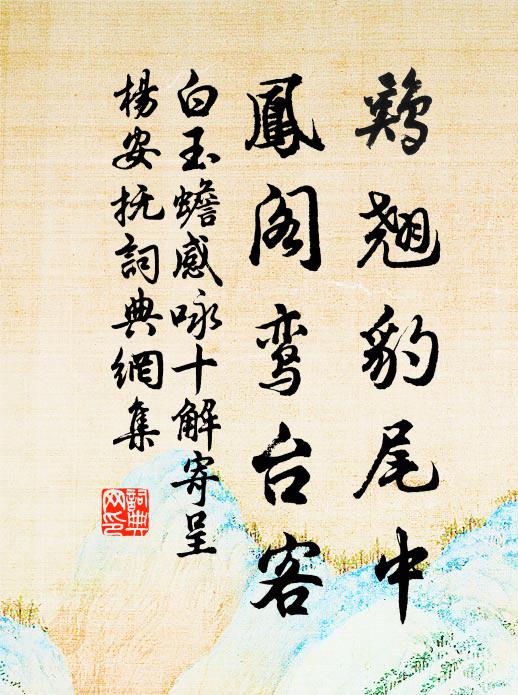 鷄翘豹尾中
鳳阁鸾台客
白玉蟾感咏十解寄呈
楊安抚詞典網集
詞典
网印